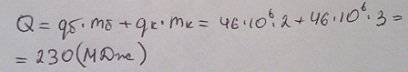 Q = qб · mб + qк · mк = 46·10⁶·2 + 46·10⁶·3 =
= 230 (МДж)